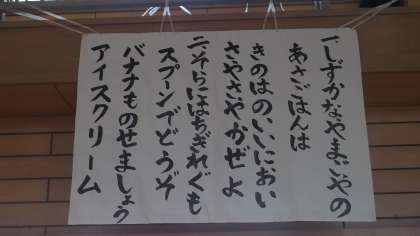 一しずかなやまごやの
あさごはんは
きのはのいいにおい
さやさやかぜよ
二そらにはちぎれぐも
スプーンでどうぞ
バナナものせましょう
アイスクリーム